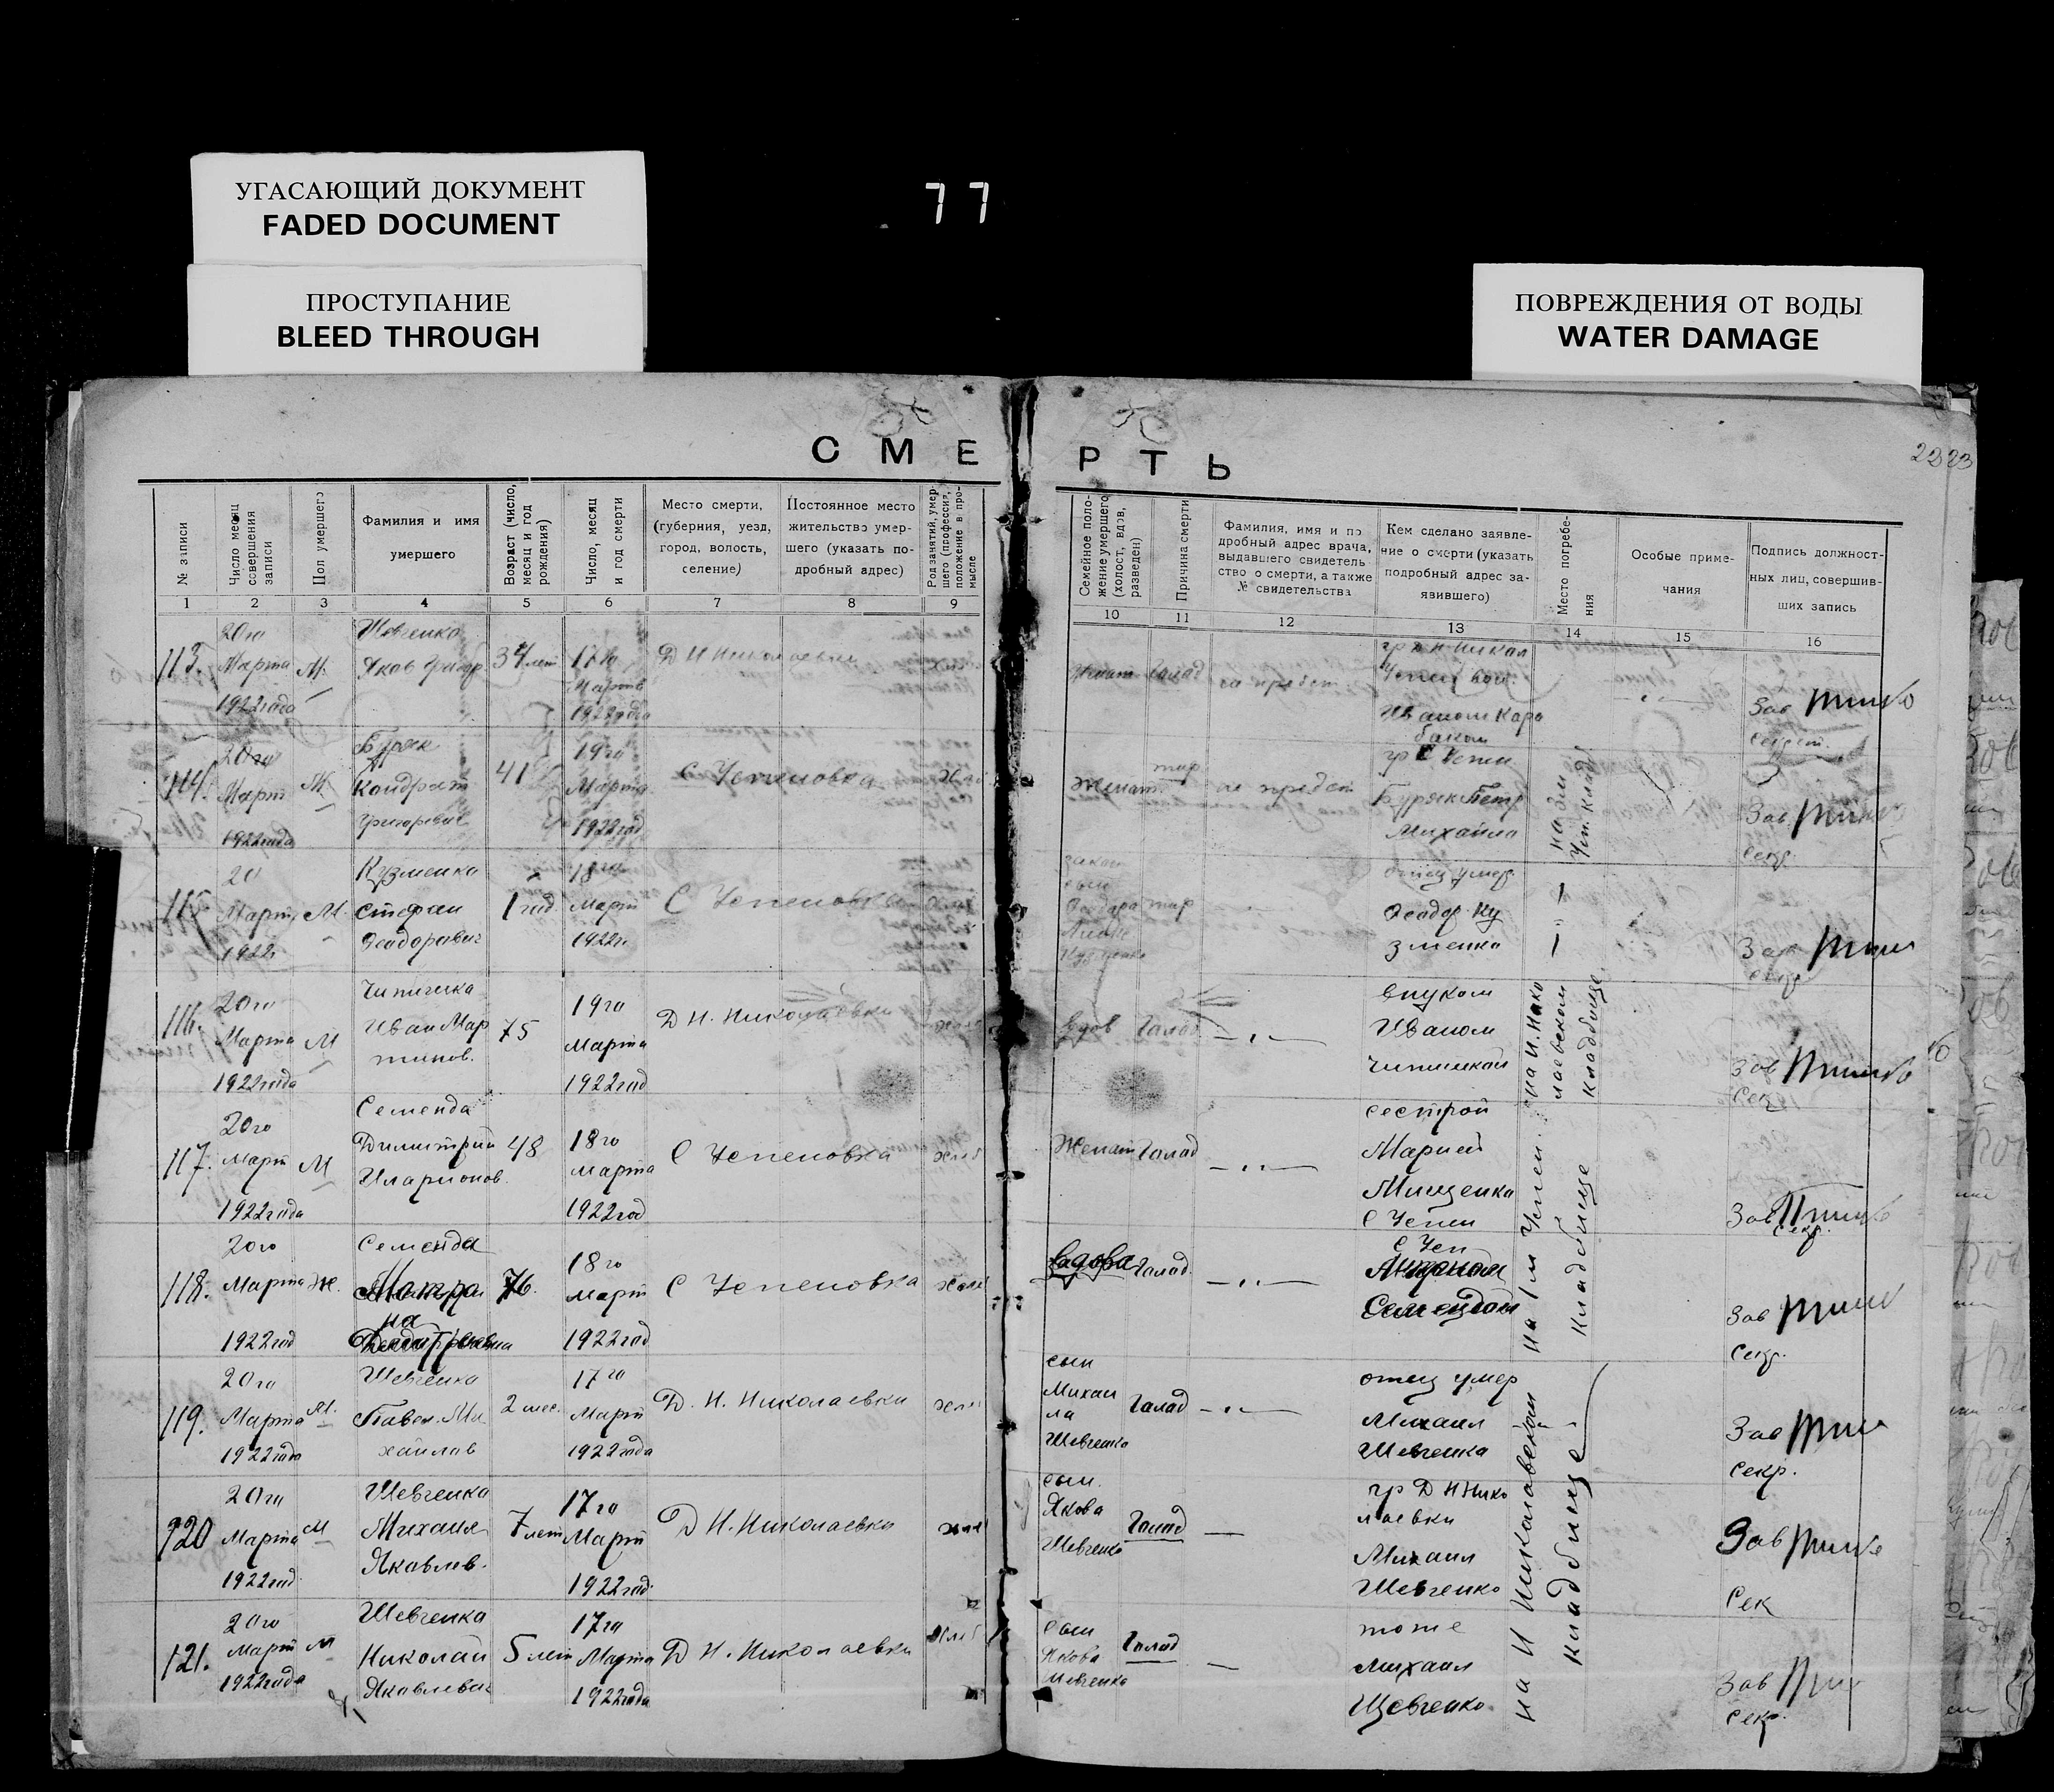 УГАСАЮЩИЙ ДОКУМЕНТ
FADED DOCUMENT
ПРОСТУПАНИЕ
BLEED THROUGH
77
ПОВРЕЖДЕНИЯ ОТ ВОДЫ
WATER DAMAGE
СМЕРТЬ
№ записи
Число месяц
совершения
записи
Пол умершего
Фамилия и имя
умершего
Возраст (число,
месяц и год
рождения)
Число, месяц
и год смерти
Место смерти,
(губерния, уезд,
город, волость,
селение)
Постоянное место
жительство умер-
шего (указать по-
дробный адрес)
Род занятий, умер-
шего (профессия,
положение в про-
мысле
Семейное поло-
жение умершего
(холост, вдов,
разведен)
Причина смерти
Фамилия, имя и по
дробный адрес врача,
выдавшего свидетель
ство о смерти, а также
№ свидетельства
Кем сделано заявле-
ние о смерти (указать
подробный адрес за-
явившего)
Место погребе-
ния
Особые приме-
чания
Подпись должност-
ных лиц, совершив-
ших запись
1 2 3 4 5 6 7 8 9
10 11 12 13 14 15 16
113.
20го
Марта
1922года
М.
Шевченко
Яков
17го
1922года
Д Н Николаевки
Женат
Голод
Иваном Кара
баком
Зав
114.
20го
Март
1922года
М.
Буряк
Кондрат
Григоревич
41
19го
Марта
1922год
С Успеновка
Женат
тиф
не предст
гр С Успен
Буряк Петр
Михайло
Зав.
Секр.
115
20
Март
1922г
М.
Кузменко
Стефан
Феодоравич
1 год
18го
Март
1922г.
С Успеновка
закон
сын
Феодора
Кузменко
тиф
отец умер
Феодор Ку
зменко
Зав
Секр
116.
20го
Марта
1922года
М
Чипичка
Иван Мар
тинов.
75
19го
Марта
1922год
Д Н. Николаевки
Вдов
Голод
внуком
Иваном
на Н. Нико
лаевском
кладбище
Зав
Сек
117.
20го
Март
1922года
М
Семенда
Димитрий
Иларионов.
48
18го
марта
1922год
С Успеновка
хлеб
Женат
Голод
сестрой
Марией
Мищенка
С Успен
Зав
Секр.
118.
20го
Марта
1922год
Ж.
Семенда
Матре
на
76.
18го
март
1922год
С Успеновка
хлеб
Вдова
Голод.
С Усп
Семендой
кладбище
Зав
Секр.
119.
20го
Марта
1922года
М.
Шевченка
Павел. Ми
хайлов
2 мес.
17го
Март
1922года
Д. Н. Николаевки
хлеб
сын
Михаи
ла
Шевченко
Голод
отец умер
Михаил
Шевченка
Зав
Секр.
120
20го
Марта
1922год.
М
Шевченка
Михаил
Яковлев.
7 лет
17го
Март
1922год.
Д Н. Николаевки
хлеб
сын.
Якова
Шевченко
Голод
гр Д Н Нико
лаевки
Михаил
Шевченко
на Н Николаевском
кладбище
Зав
Сек
121.
20го
Март
1922года
М
Шевченка
Николай
Яковлевич
5 лет
17го
Марта
1922года
Д Н. Николаевки
хлеб
сын
Якова
Шевченко
Голод
тоже
Михаил
Шевченко.
Зав
Секр.